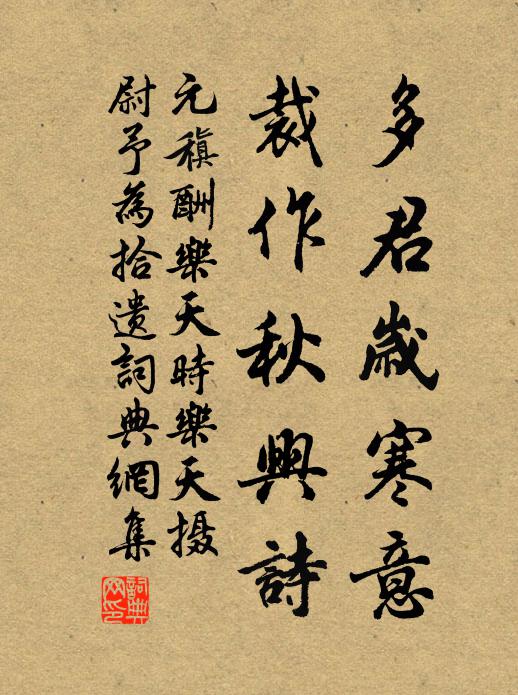 多君歲寒意
裁作秋興詩
元稹酬樂天時樂天摄
尉予為拾遺詞典網集
詞典
网印